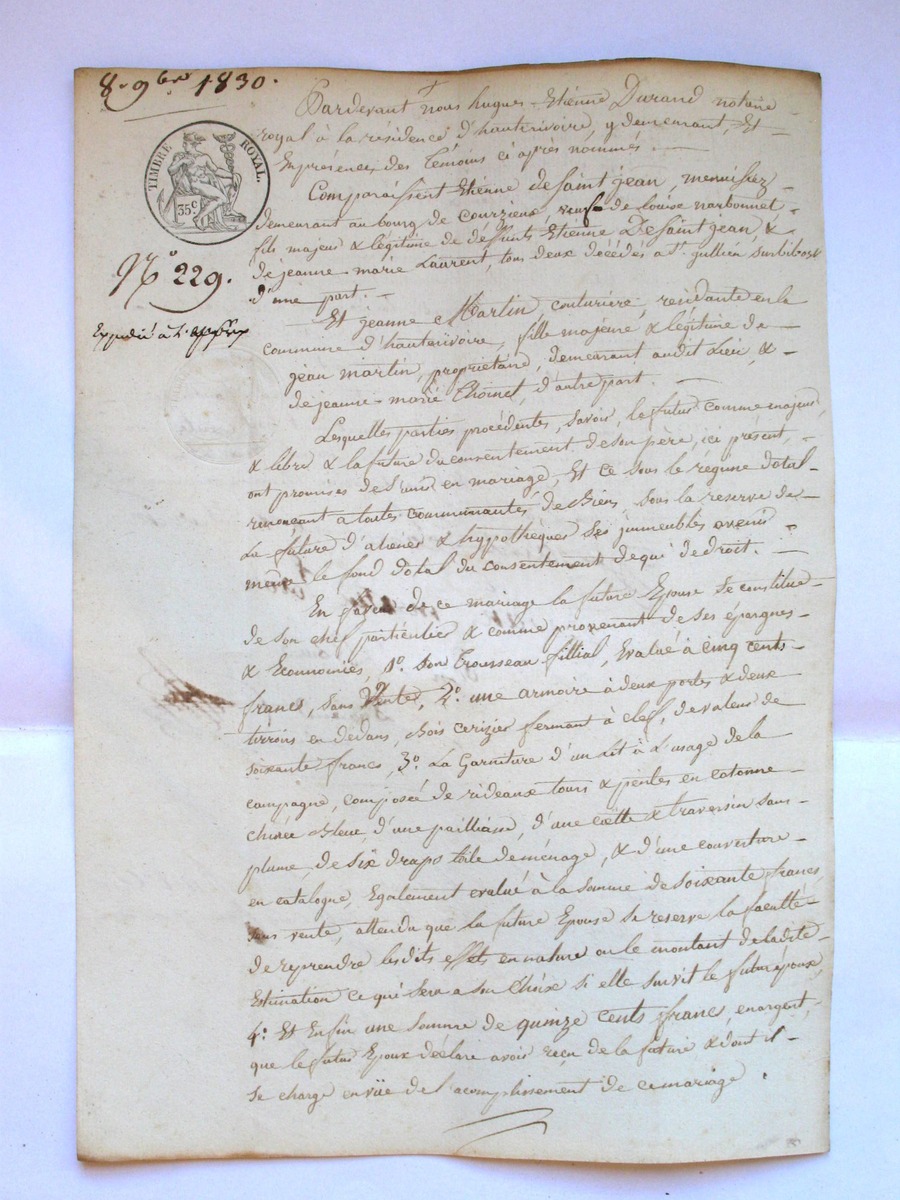 8. 9bre 1830.
TIMBRE ROYAL.
35c
N° 229.
Expédié à
Pardevant nous hugues-Etienne Durand notaire
royal à la résidence d'hauterivoire, y demeurant, Et
En présence des témoins ci après nommés.
Comparaissent Etienne deSaint jean, menuizier
demeurant au bourg de Courzieux, veuf de Louise narbonnet
fils majeur & légitime de deffunts Etienne DeSaint jean, &
de jeanne-marie Laurent, tous deux décédés à St. jullien sur bibost
d'une part.
Et jeanne Martin, couturière, residante en la
commune d'hauterivoire, fille majeure & légitime de
jean martin, propriétaire, demeurant audit Lieu, &
de jeanne-marie Thoinet, d'autre part.
Lesquelles parties procédentes, Savoir, le futur comme majeur,
& libre & la future du consentement de son père, ici présent,
ont promises de s'unir en mariage, Et ce sous le régime dotal
renonçant à toutes communautés de Biens sous la reserve de
La future d'aliéner & hypothéquer Ses immeubles avenir
même le fond dotal du consentement de qui de droit.
En faveur de ce mariage la future Epouse Se constitue
de Son chef particulier & comme provenant de ses épargnes
& Economies, 1°. Son Trousseau fillial, Evalué à Cinq Cents
francs, sans Vente, 2°. une armoire à deux portes & deux
tirroirs en dedans, Bois cerizier fermant à clef, de valeur de
soixante francs, 3°. La Garniture d'un Lit à L'usage de la
campagne, composée de rideaux tours & pentes en cotonne
chinée Bleue, d'une pailliasse, d'une coëtte & traversin sans
plume, de Six draps toile de ménage, & d'une couverture
en catalogne, Egalement évalué à la Somme de Soixante francs
sans vente, attendu que la future Epouse se reserve la faculté
de reprendre les dits effets en nature ou le montant de ladite
Estimation ce qui sera a son Choix si elle survit le futur époux
4°. Et Enfin une Somme de quinze Cents francs, en argent,
que le futur Epoux déclare avoir reçu de la future & dont il
se charge en vüe de l'acomplissement de ce mariage.